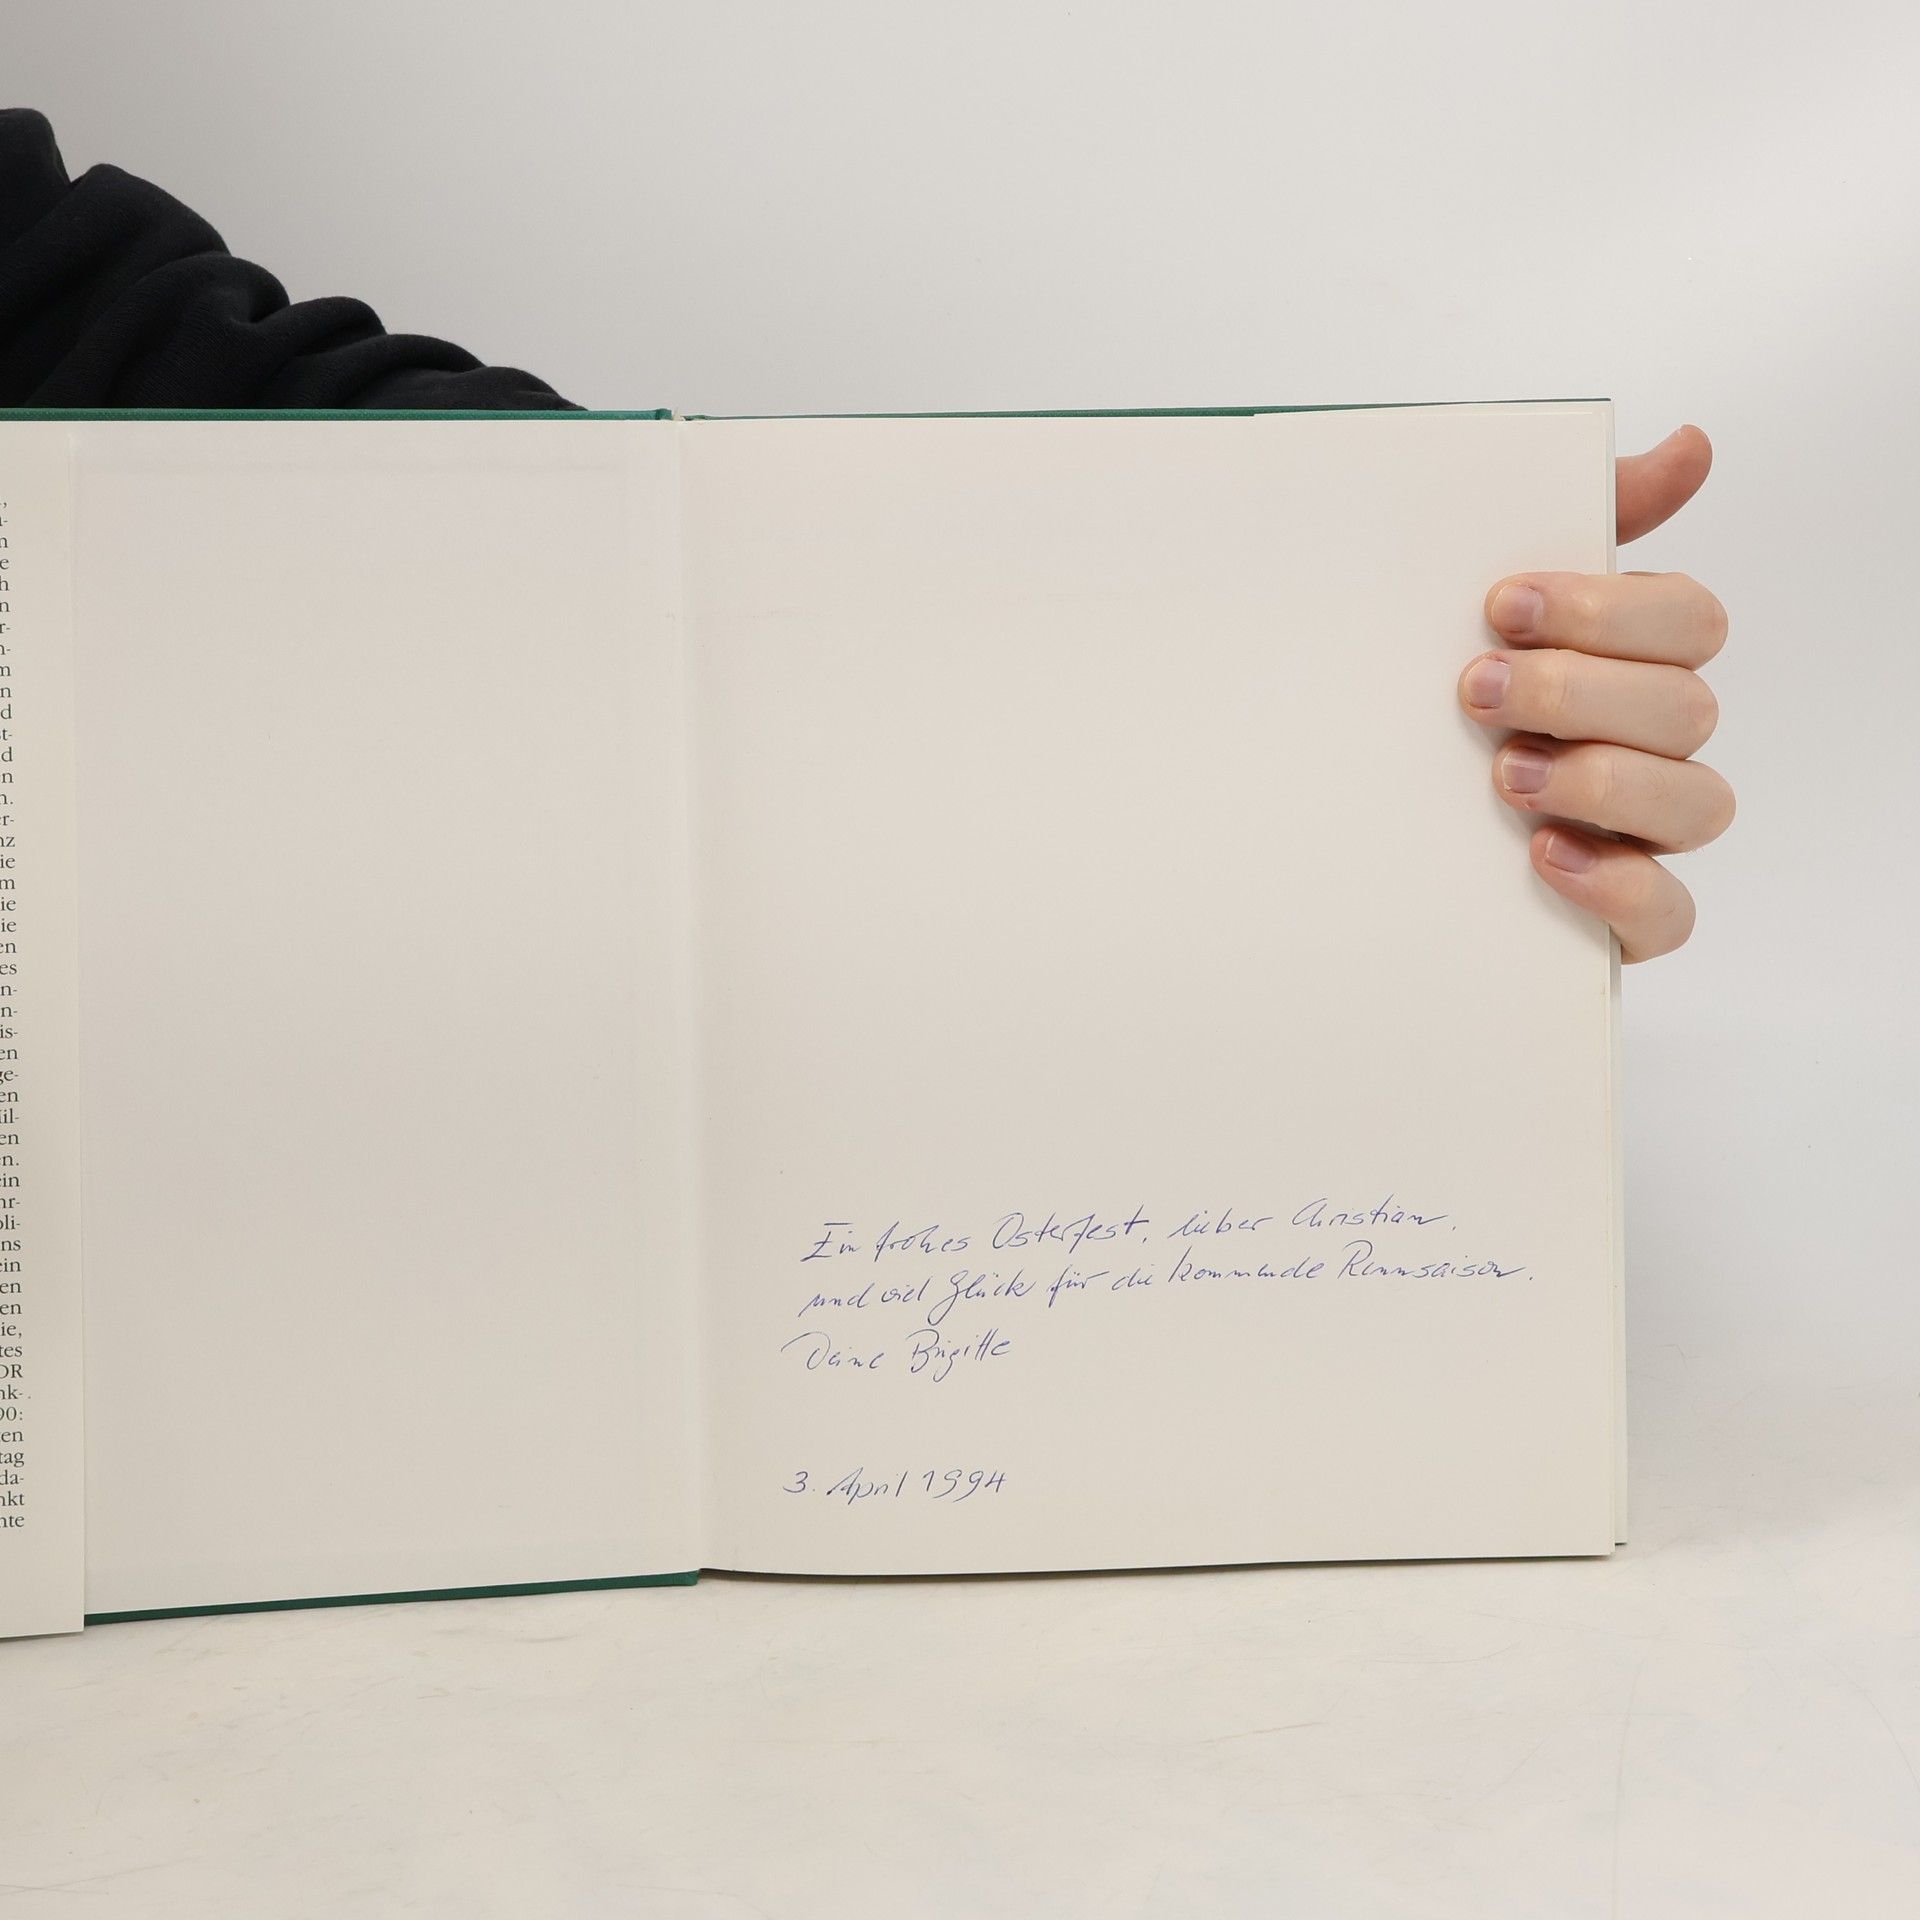 ,
a-
n
e
h
n
r-
n-
m
n
d
st-
d
en
n.
er-
nz
ie
m
ie
ie
en
es
n-
n-
is-
en
ge-
en
Mil-
en
en.
ein
hr-
oli-
ns
ein
en
en
ie,
tes
DR
nk-
90:
en
tag
da-
nkt
nte
Ein frohes Osterfest, lieber Christian,
und viel Glück für die kommende Rennsaison.
Deine Brigitte
3. April 1994